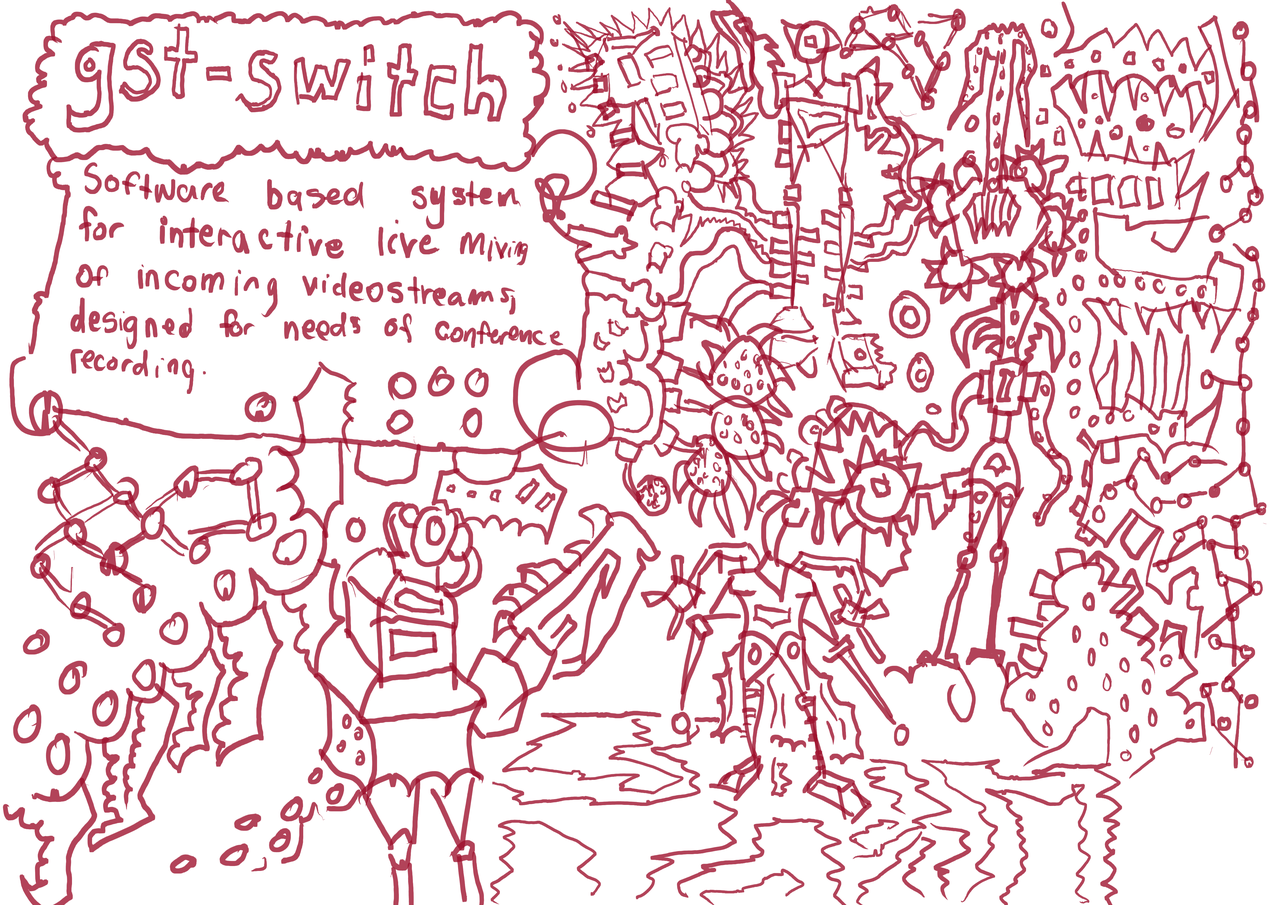 gst-switch
Software based system
for interactive live mixing
of incoming videostreams,
designed for needs of conference
recording.